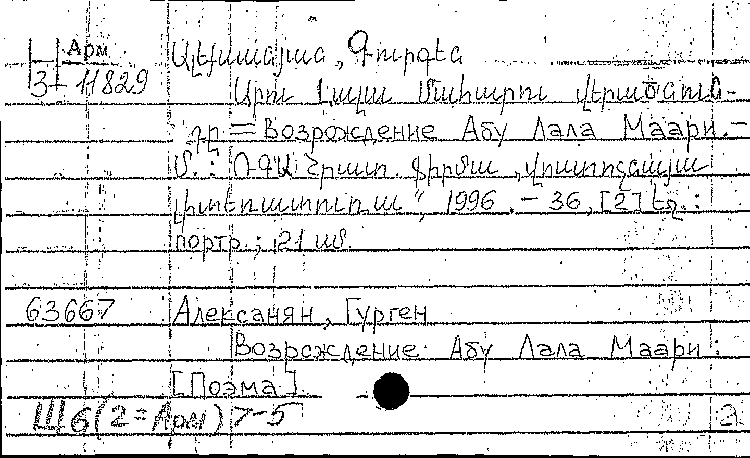 Арм
3-11829
Ալեքսանյան, Գուրգեն
Աբու Լալա Մահարու վերածնուն-
դը = Возрождение Абу Лала Маари. –
Մ.: ՌԳԱ հրատ. ֆիրմա „
լիտերատուրա“, 1996. – 36, [2] էջ.:
портр.; 21 սմ.
63667 Алексанян, Гурген
Возрождение Абу Лала Маари:
[Поэма].
Ш6(2=Арм)7-5 2